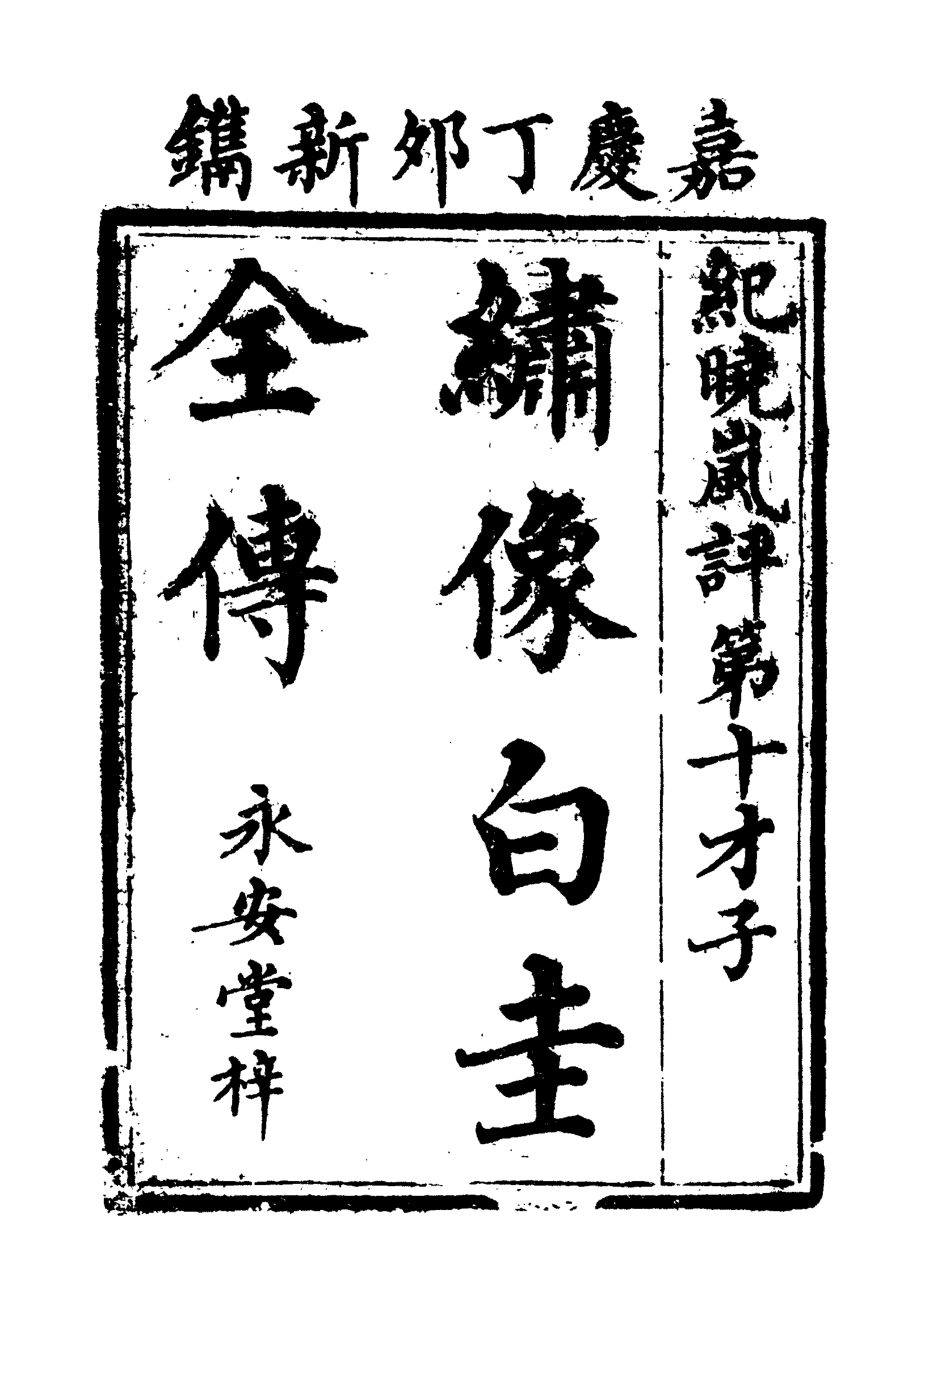 嘉慶丁夘新鐫
紀曉嵐評第十才子
繡像白圭
全傳
永安堂梓